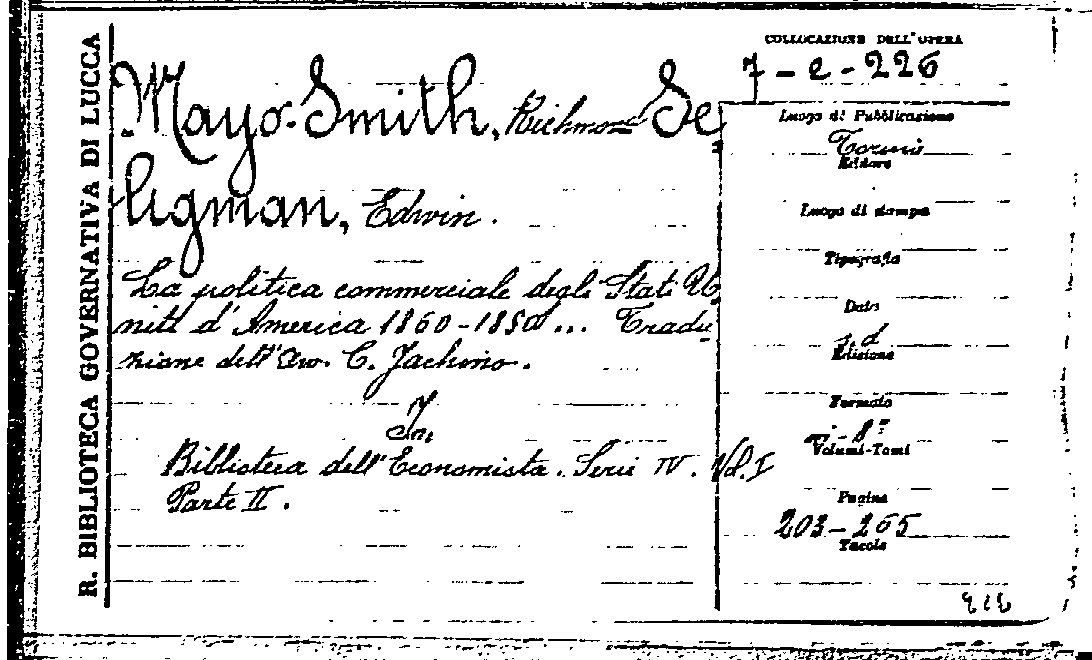 R. BIBLIOTECA GOVERNATIVA DI LUCCA
COLLOCAZIONE DELL'OPERA
7 - e - 226
Mayo-Smith, Richmond Se
ligman, Edwin.
La politica commerciale degli Stati U
niti d'America 1860-1890... Tradu
zione dell'Avv. C. Jachino.
In
Biblioteca dell'Economista. Serie IV. Vol. I
Parte II.
Luogo di Pubblicazione
Torino
Editore
Luogo di stampa
Tipografia
Data
s. d
Edizione
Formato
in-8°
Volumi-Tomi
Pagine
203-265
Tavole